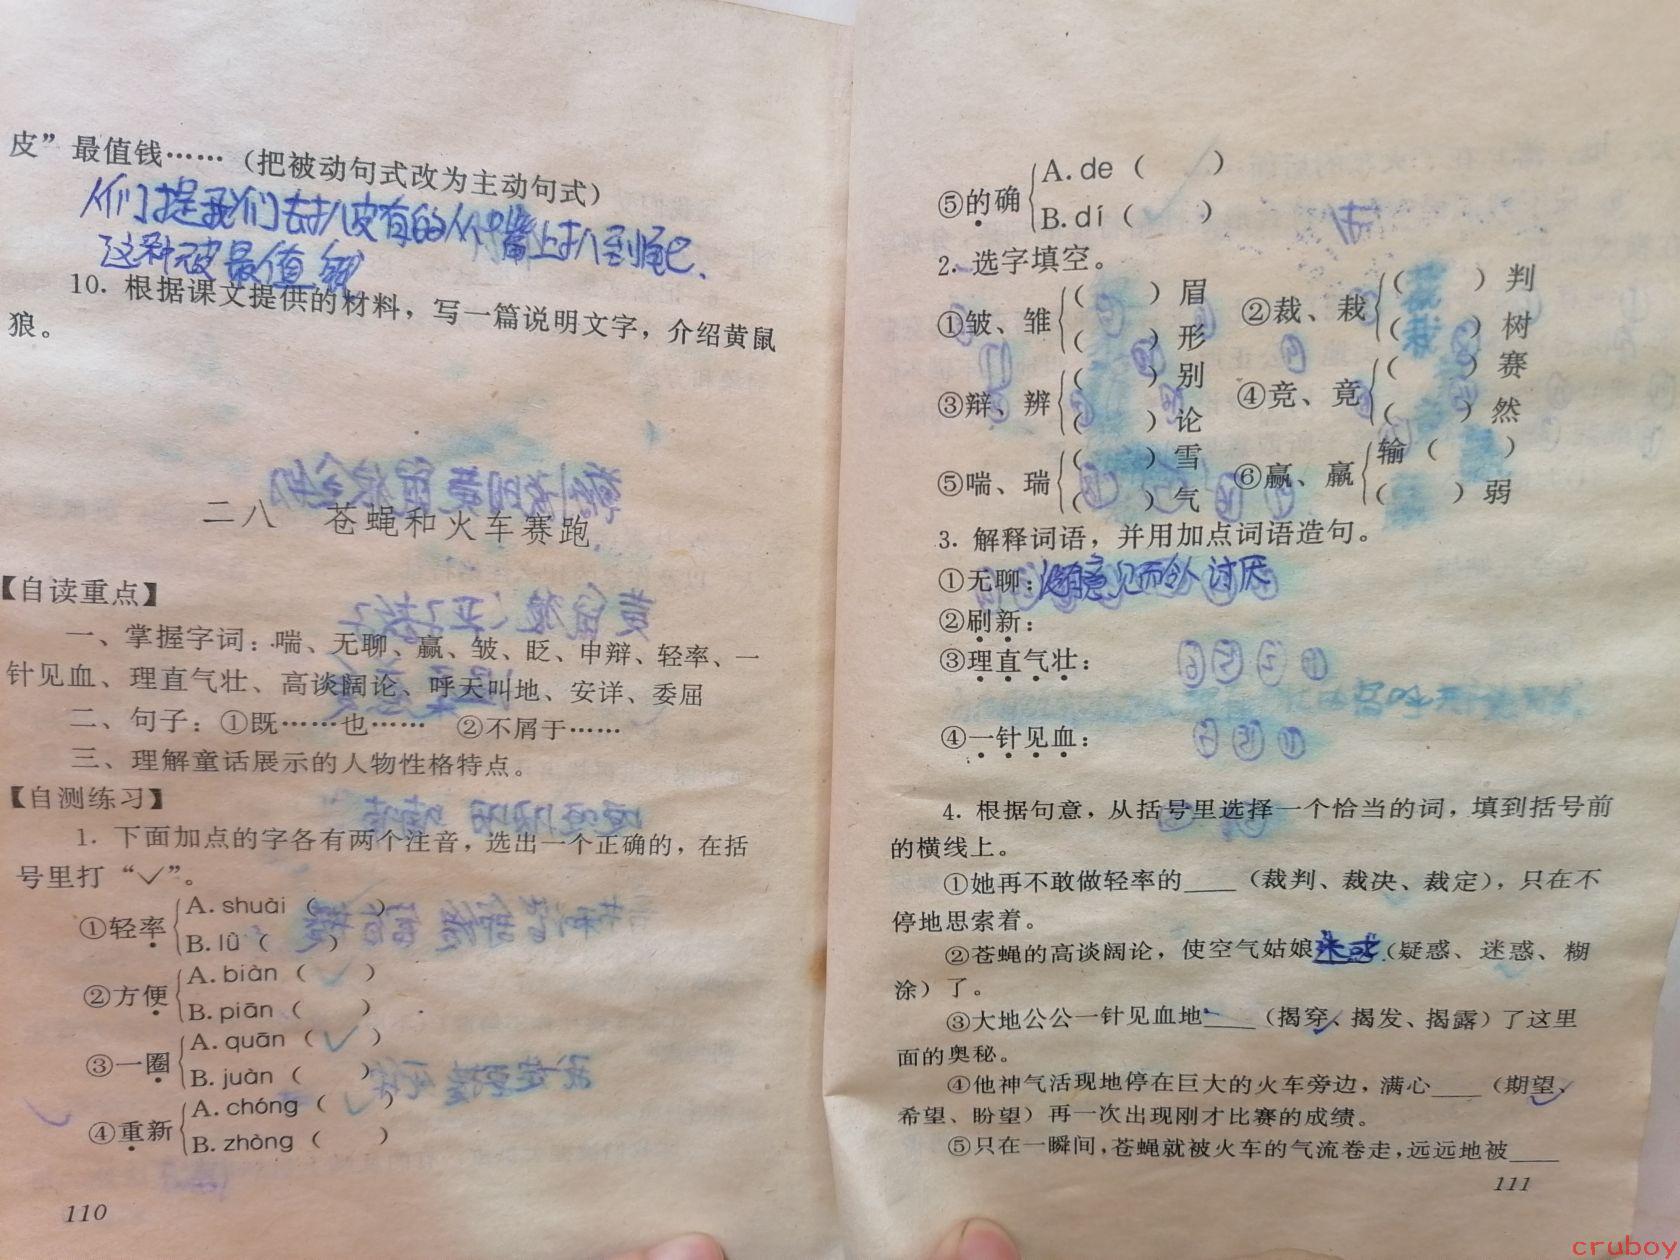 皮”最值钱……（把被动句式改为主动句式）
这种皮最值钱
10. 根据课文提供的材料，写一篇说明文字，介绍黄鼠
狼。
二八　苍蝇和火车赛跑
【自读重点】
一、掌握字词：喘、无聊、赢、皱、眨、申辩、轻率、一
针见血、理直气壮、高谈阔论、呼天叫地、安详、委屈
二、句子：①既……也……　②不屑于……
三、理解童话展示的人物性格特点。
【自测练习】
1. 下面加点的字各有两个注音，选出一个正确的，在括
号里打“✓”。
①轻率 A. shuài（　）
B. lǜ（　）
②方便 A. biàn（✓）
B. piān（　）
③一圈 A. quān（✓）
B. juàn（　）
④重新 A. chóng（✓）
B. zhòng（　）
110
⑤的确 A. de（　）
B. dí（✓）
2. 选字填空。
①皱、雏（　）眉　②裁、栽（裁）判
（　）形　（栽）树
③辩、辨（　）别　④竞、竟（　）赛
（　）论　（　）然
⑤喘、瑞（　）雪　⑥赢、羸 输（　）
（　）气　（　）弱
3. 解释词语，并用加点词语造句。
①无聊：没有意义而令人讨厌
②刷新：
③理直气壮：
④一针见血：
4. 根据句意，从括号里选择一个恰当的词，填到括号前
的横线上。
①她再不敢做轻率的____（裁判、裁决、裁定），只在不
停地思索着。
②苍蝇的高谈阔论，使空气姑娘迷惑（疑惑、迷惑、糊
涂）了。
③大地公公一针见血地____（揭穿、揭发、揭露）了这里
面的奥秘。
④他神气活现地停在巨大的火车旁边，满心____（期望、
希望、盼望）再一次出现刚才比赛的成绩。
⑤只在一瞬间，苍蝇就被火车的气流卷走，远远地被____
111
cruboy